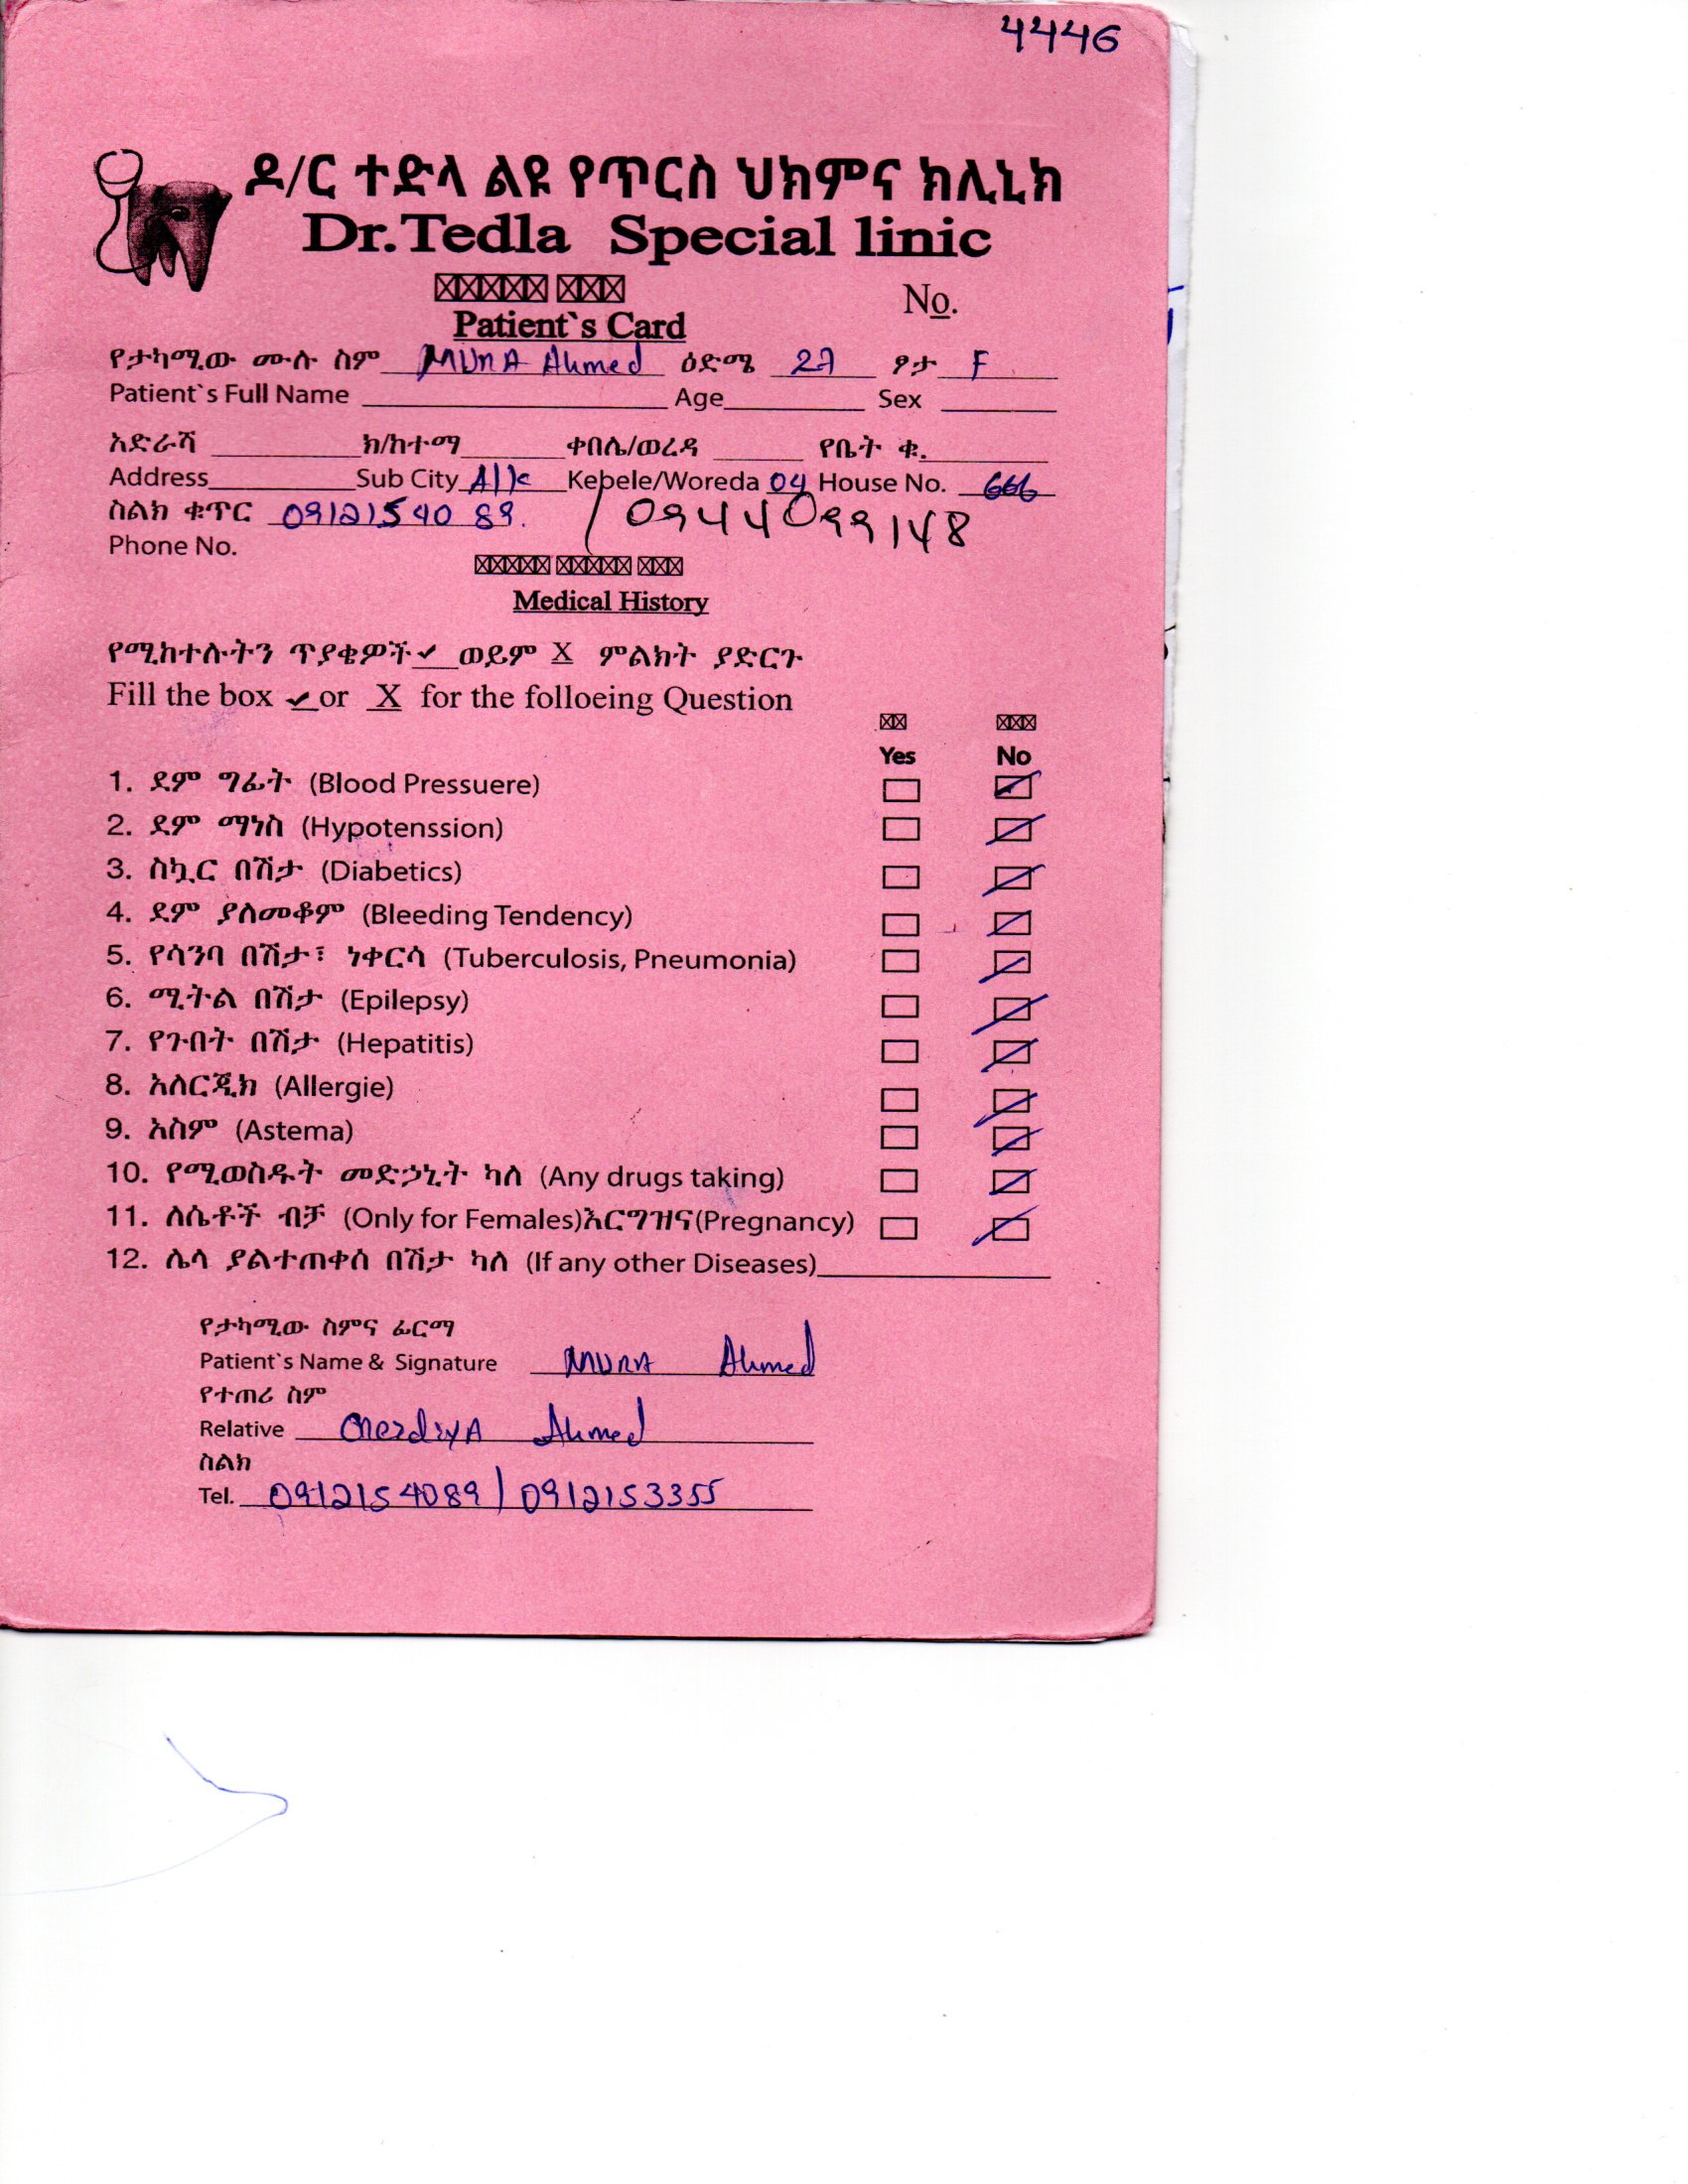 4446
ዶ/ር ተድላ ልዩ የጥርስ ህክምና ክሊኒክ
Dr.Tedla Special linic
No.
Patient`s Card
የታካሚው ሙሉ ስም MUNA Ahmed ዕድሜ 27 ፆታ F
Patient`s Full Name Age Sex
አድራሻ ክ/ከተማ ቀበሌ/ወረዳ የቤት ቁ.
Address Sub City A/k Kebele/Woreda 04 House No. 666
ስልክ ቁጥር 0912154089. / 0944099148
Phone No.
Medical History
የሚከተሉትን ጥያቄዎች ✔ ወይም X ምልክት ያድርጉ
Fill the box ✔ or X for the folloeing Question
Yes No
1. ደም ግፊት (Blood Pressuere)
2. ደም ማነስ (Hypotenssion)
3. ስኳር በሽታ (Diabetics)
4. ደም ያለመቆም (Bleeding Tendency)
5. የሳንባ በሽታ፣ ነቀርሳ (Tuberculosis, Pneumonia)
6. ሚትል በሽታ (Epilepsy)
7. የጉበት በሽታ (Hepatitis)
8. አለርጂክ (Allergie)
9. አስም (Astema)
10. የሚወስዱት መድኃኒት ካለ (Any drugs taking)
11. ለሴቶች ብቻ (Only for Females)እርግዝና(Pregnancy)
12. ሌላ ያልተጠቀሰ በሽታ ካለ (If any other Diseases)
የታካሚው ስምና ፊርማ
Patient`s Name & Signature MUNA Ahmed
የተጠሪ ስም
Relative Ahmed
ስልክ
Tel. 0912154089 / 0912153355